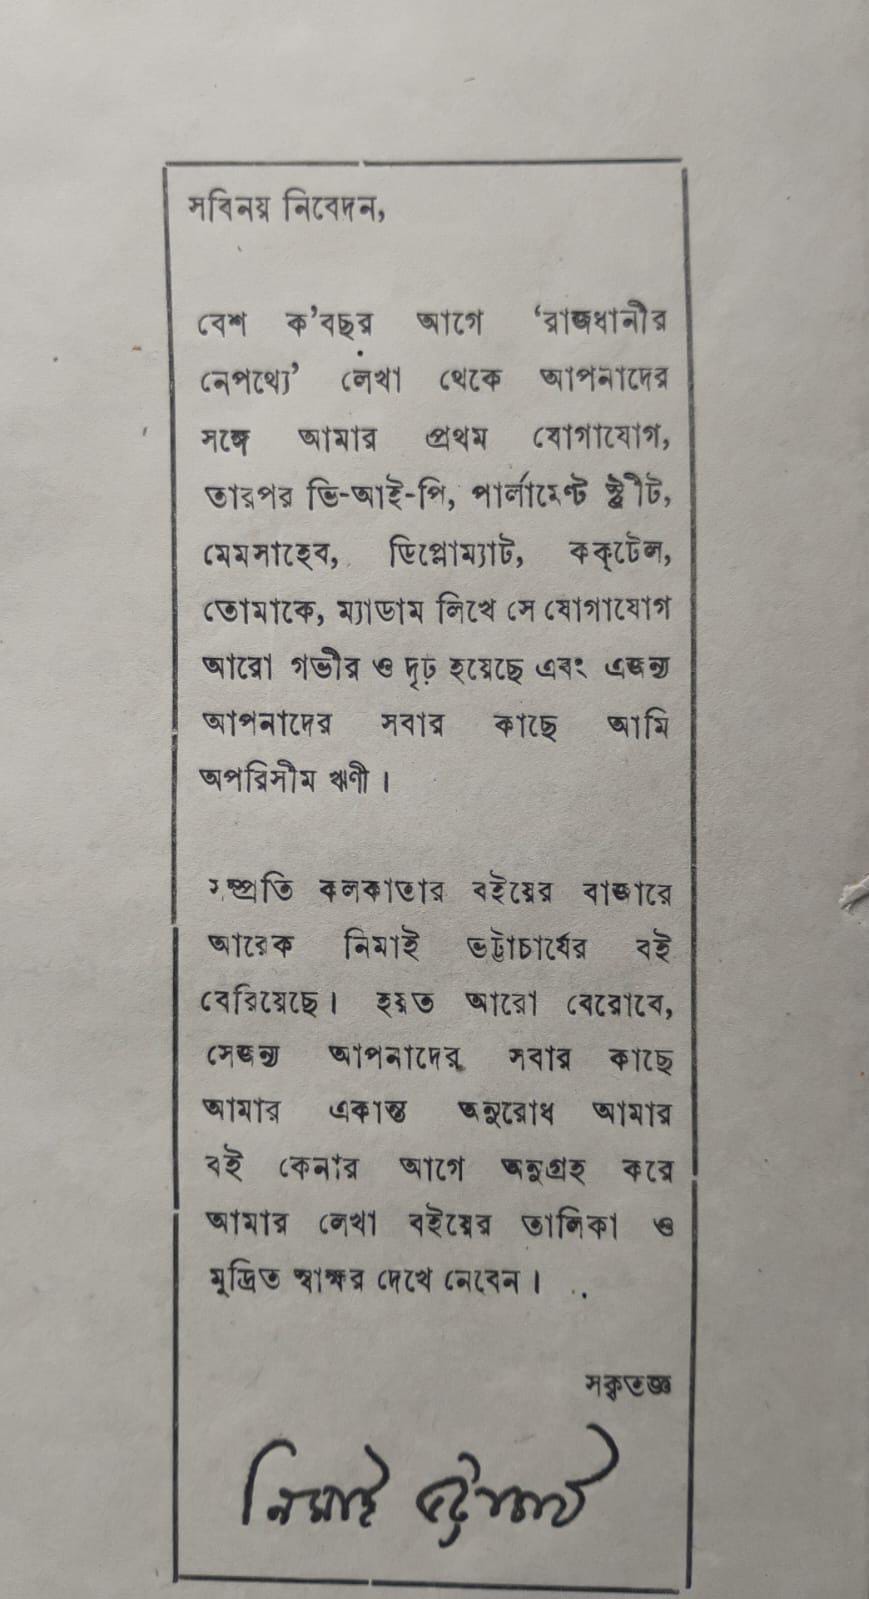 সবিনয় নিবেদন,
বেশ ক'বছর আগে ‘রাজধানীর
নেপথ্যে’ লেখা থেকে আপনাদের
সঙ্গে আমার প্রথম যোগাযোগ,
তারপর ভি-আই-পি, পার্লামেণ্ট স্ট্রীট,
মেমসাহেব, ডিপ্লোম্যাট, ককৃটেল,
তোমাকে, ম্যাডাম লিখে সে যোগাযোগ
আরো গভীর ও দৃঢ় হয়েছে এবং এজন্য
আপনাদের সবার কাছে আমি
অপরিসীম ঋণী।
সম্প্রতি কলকাতার বইয়ের বাজারে
আরেক নিমাই ভট্টাচার্যের বই
বেরিয়েছে। হয়ত আরো বেরোবে,
সেজন্য আপনাদের সবার কাছে
আমার একান্ত অনুরোধ আমার
বই কেনার আগে অনুগ্রহ করে
আমার লেখা বইয়ের তালিকা ও
মুদ্রিত স্বাক্ষর দেখে নেবেন।
সকৃতজ্ঞ
নিমাই ভট্টাচার্য